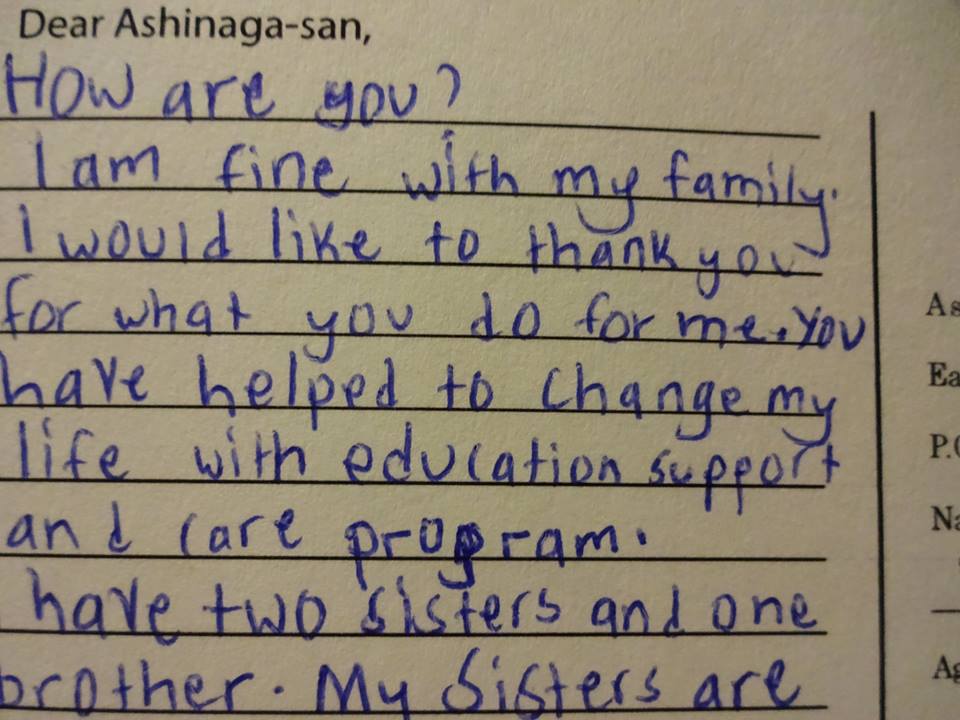 Dear Ashinaga-san,
How are you?
I am fine with my family.
I would like to thank you
for what you do for me. You
have helped to change my
life with education support
and care program.
have two sisters and one
brother. My sisters are
As
Ea
P.
Na
Ag